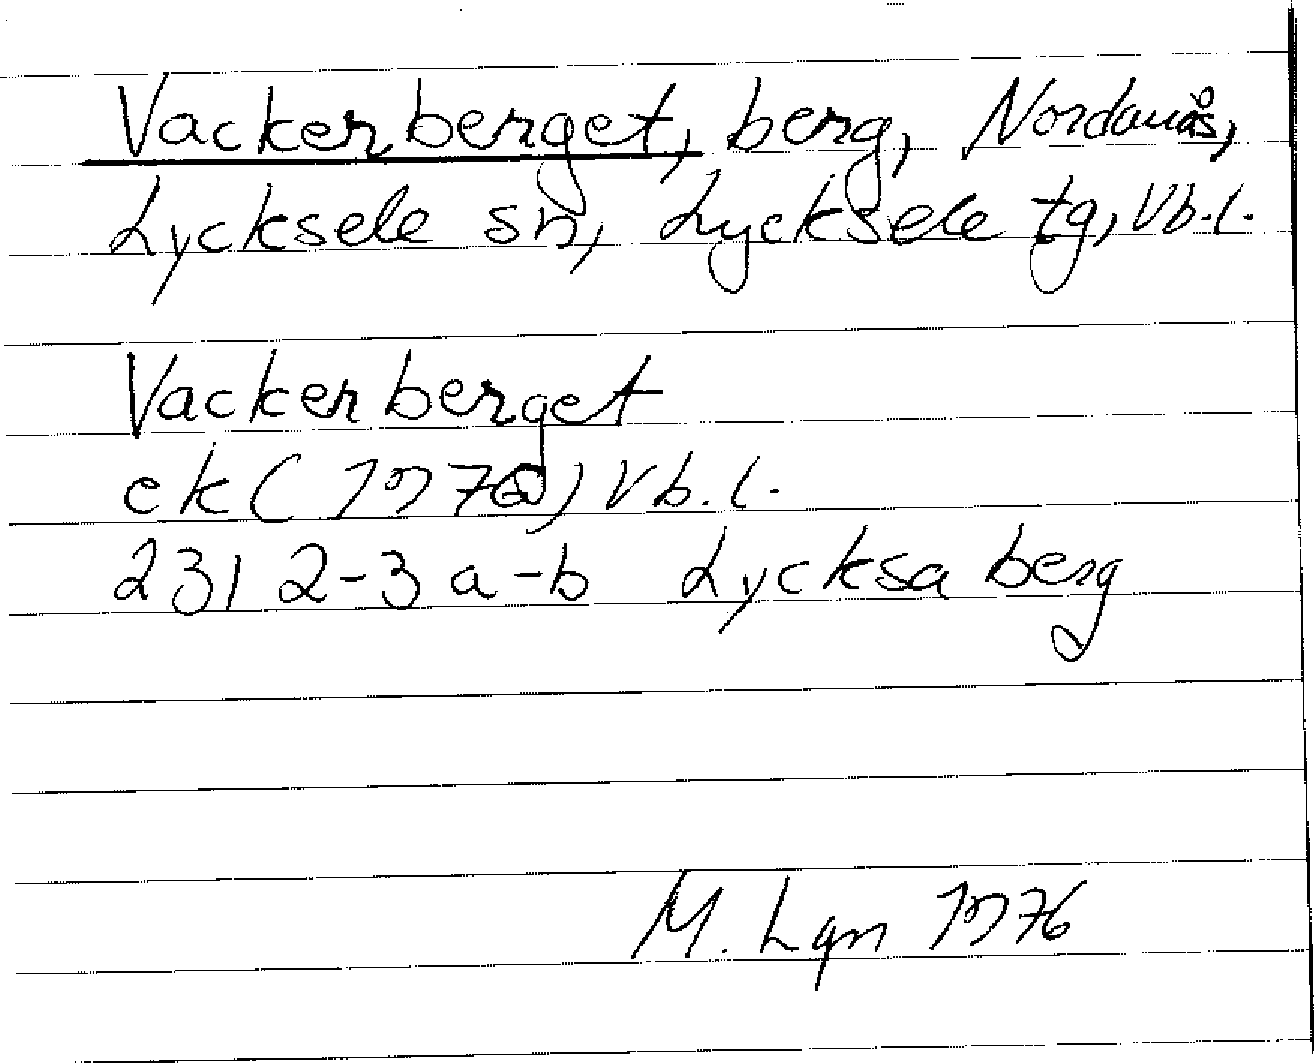 Vackerberget, berg, Nordanås,
Lycksele sn, Lycksele tg, Vb.l.
Vackerberget
ek (1970) Vb.l.
231 2-3 a-b Lycksaberg
M. Lgn 1976